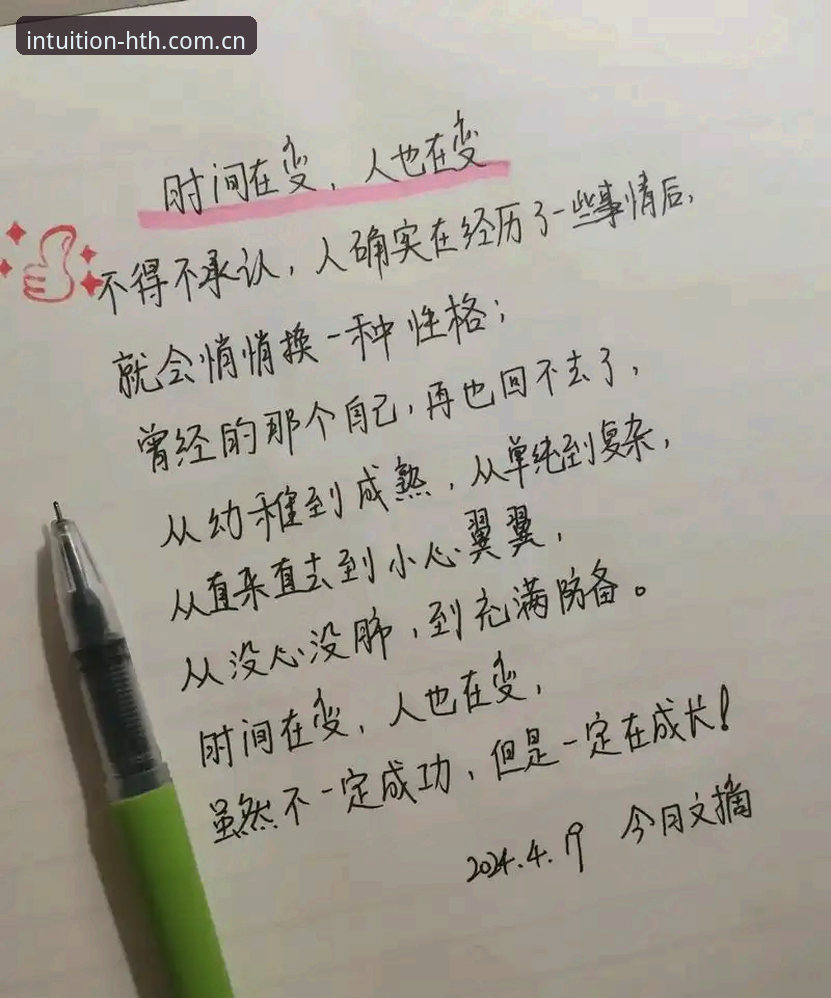 intuition-hth.com.cn
时间在变，人也在变
不得不承认，人确实在经历了一些事情后，
就会悄悄换一种性格；
曾经的那个自己，再也回不去了，
从幼稚到成熟，从单纯到复杂，
从直来直去到小心翼翼，
从没心没肺，到充满防备。
时间在变，人也在变，
虽然不一定成功，但是一定在成长！
2024.4.19 今日文摘